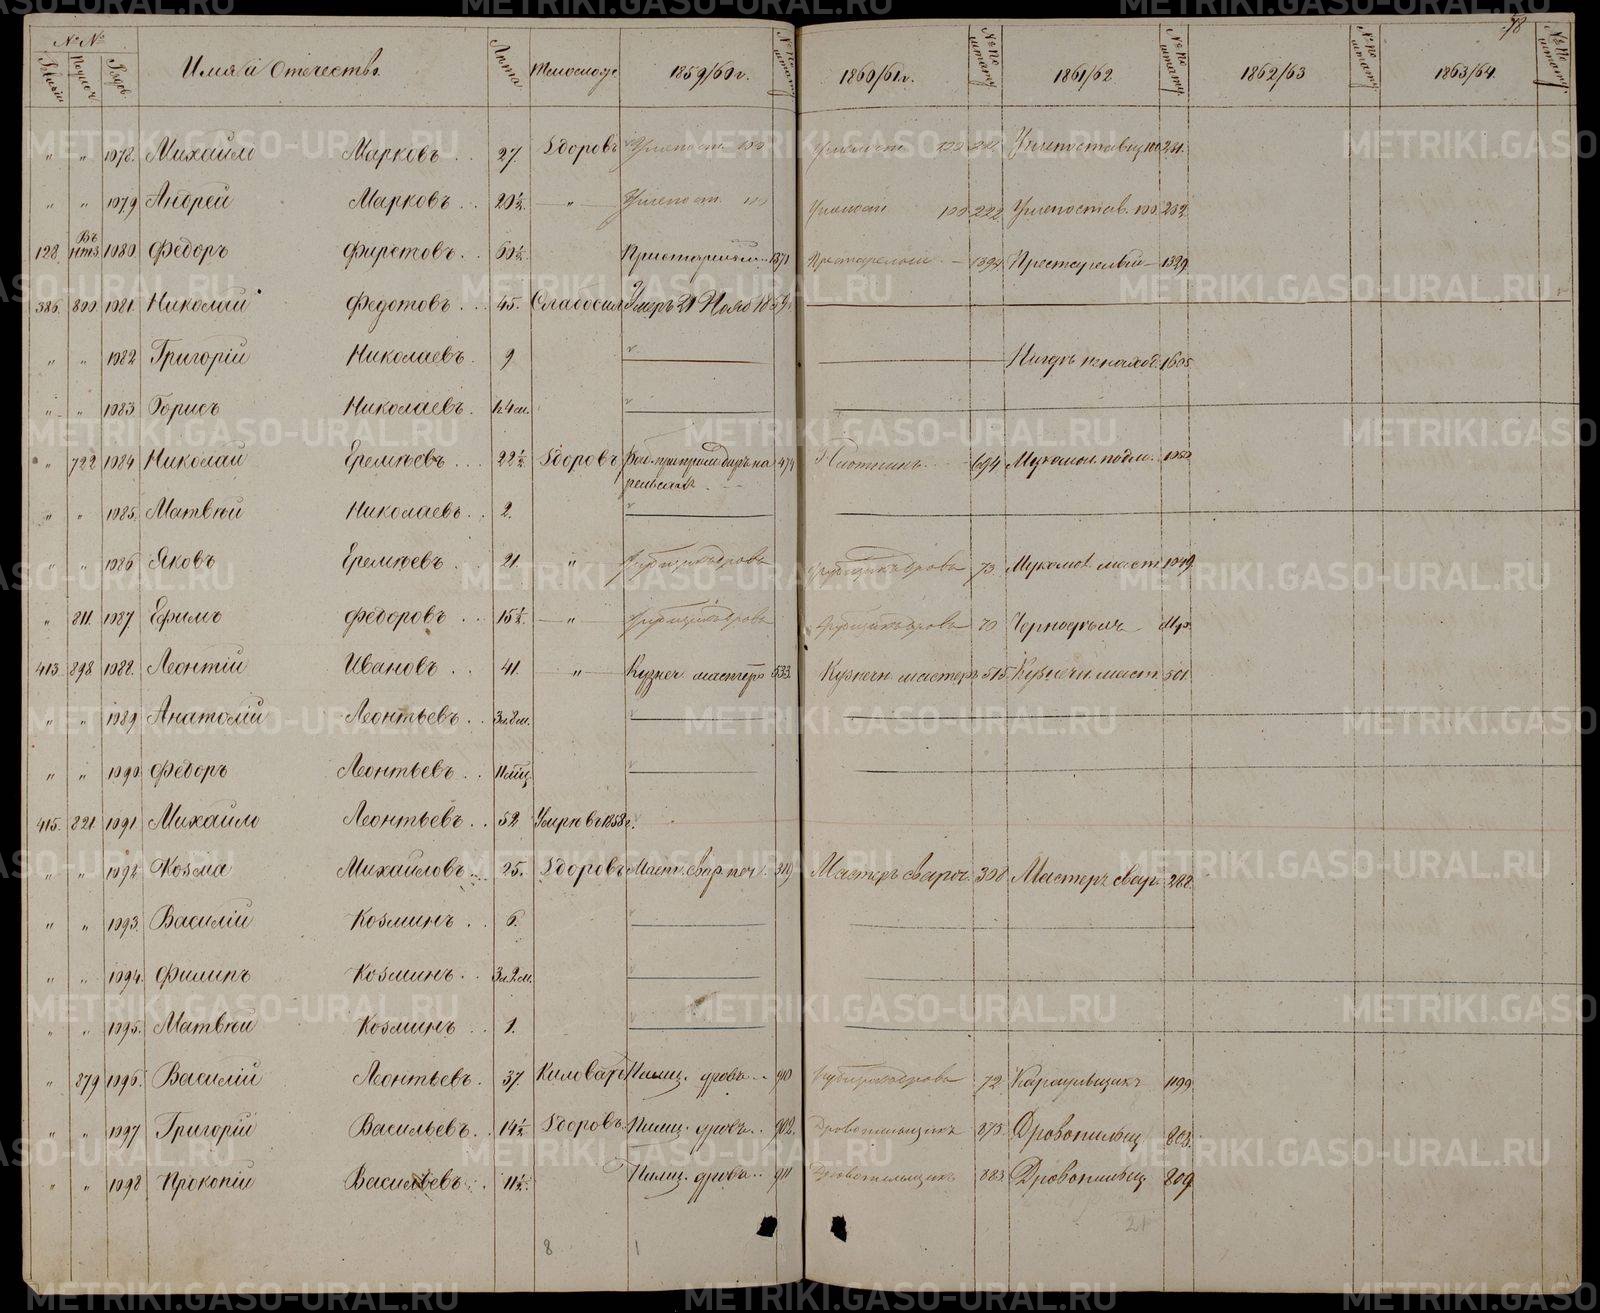 78
№ №
Имя и Отечество
Лѣта
Телослож
1859/60 г.
1860/61 г.
1861/62
1862/63
1863/64.
" " 1978. Михайло Марковъ . . 27. Здоровъ Углепост. 100 Углепост 100 Углепоставщ 100 231.
" " 1979 Андрей Марковъ . . 20½ " Углепост. 100 Углепост 100 222 Углепостав. 100. 232.
128. 1980. Федоръ 60½ 1371 Престарелый 1394 Престарелый 1329
386. 800. 1981. Николай Федотовъ . . . 45. Слабосил Умеръ 21 1859.
" " 1982 Григорій Николаевъ . 9 Нигдѣ не наход. 1605
" " 1983 Борисъ Николаевъ .
" 722 1984 Николай Еремѣевъ . . . 22½ Здоровъ 474 Плотникъ . . 694 Мукомол. подм. 1050
рельсахъ
" " 1985. Матвѣй Николаевъ . . 2.
" " 1986 Яковъ Еремѣевъ . . 21. " Рубщикъ дровъ Рубщикъ дровъ 73 Мукомол. маст 1049
" 811. 1987 Ефимъ Федоровъ . . 15½ " Рубщикъ дровъ Рубщикъ дровъ 70
413. 898. 1988. Леонтій Ивановъ . . 41. " Кузнеч мастеръ 533. Кузнечн мастеръ 515. Кузнечн маст. 501.
" " 1989 Анатолій Леонтьевъ . . 3л.8м.
" " 1990. Федоръ Леонтьевъ . . 11 мѣц.
415. 821. 1991 Михайло Леонтьевъ . . 52 Умръ въ 1858 г.
" " 1992 Козма Михайловъ . . 25. Здоровъ Маст. свар. печ. 319 Мастеръ свароч. 308 Мастеръ свар. 288.
" " 1993. Василій Козминъ . . 6.
" " 1994. Филипъ Козминъ . . 3л.2м.
" " 1995. Матвѣй Козминъ . . 1.
" 879 1996. Василій Леонтьевъ . 37. Киловатъ Пилщ. дровъ . . 910 Рубщикъ дровъ 72 Караульщикъ 1199.
" " 1997 Григорій Васильевъ . . 14½ Здоровъ. Пилщ. дровъ . . 902. Дровопильщикъ 875. Дровопильщ 803.
" " 1998 Прокопій Васильевъ . . 11½ Пилщ. дровъ . . 911 Дровопильщикъ 883. Дровопильщ 809.
8 1 21
METRIKI.GASO-URAL.RU